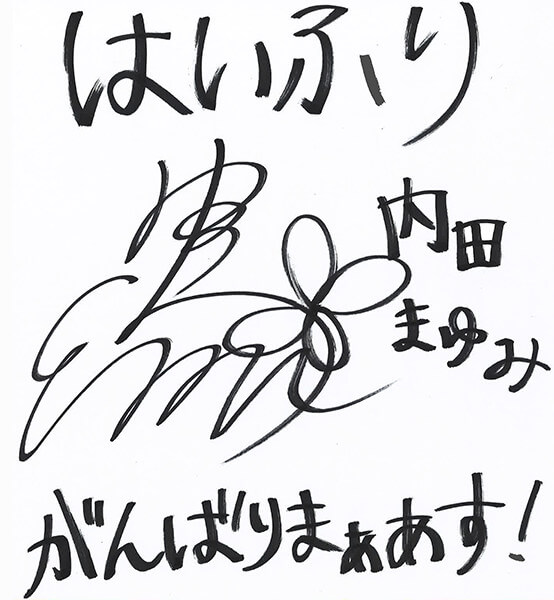 はいふり
内田
まゆみ
がんばりまぁあす!